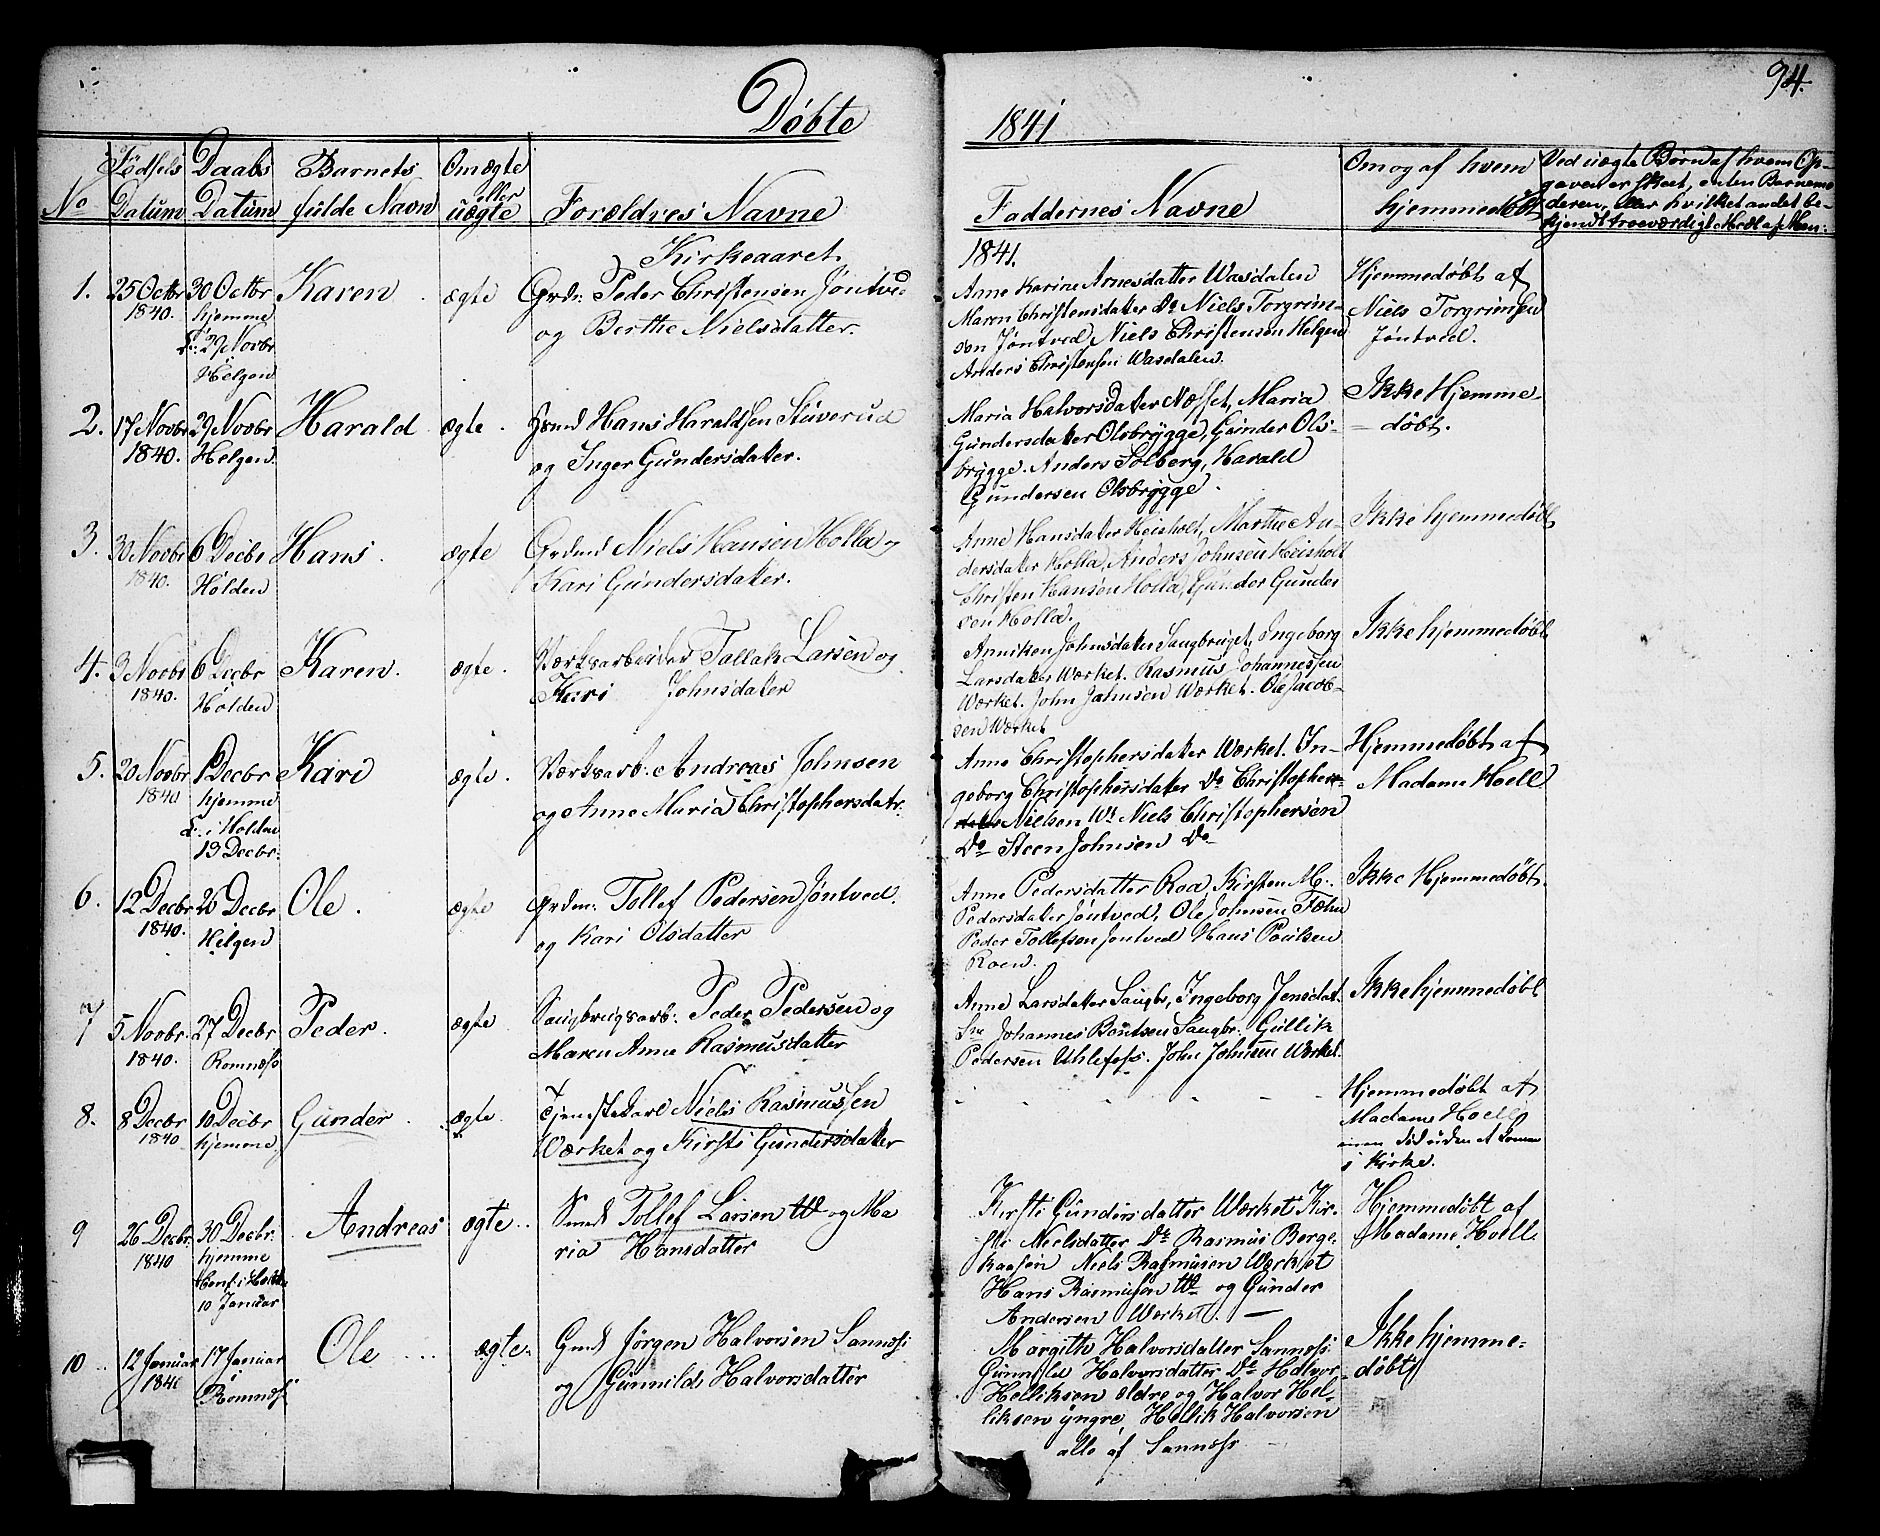 94.
Døbte 1841
No
Fødsels Datum
Daabs Datum
Barnets fulde Navn
Om ægte eller uægte
Forældres Navne
Faddernes Navne
Om og af hvem hjemmedøbt
Ved uægte Børn af hvem Op-
gaven er skeet, enten Barnemo-
deren, eller hvilket andet be-
kjendt troeværdigt
Kirkeaaret 1841.
1. 25 Octbr 1840. 30 Octbr hjemme
29 Novbr Helgen
Karen
ægte
Grdm: Peder Christensen Jøntve-
og Berthe Nielsdatter.
Anne Karine Arnesdatter Wasdalen
Maren Christensdater Do Niels Torgrim-
sen Jøntved, Niels Christensen Helgen
Anders Christensen Wasdalen.
Hjemmedøbt af
Niels Torgrimsen
Jøntved.
2. 17 Novbr 1840. 29 Novbr Helgen
Harald
ægte.
Hans Haraldsen Stuverud
og Inger Gundersdater.
Maria Halvorsdater Næsset, Maria
Gundersdater Olsbrygge, Gunder Ols-
brygge. Anders Solberg, Harald
Gundersen Olsbrygge.
Ikke Hjemme-
døbt.
3. 30 Novbr 1840. 6 Decbr Holden
Hans.
ægte
Grdmd Niels Hansen Holla og
Kari Gundersdater.
Anne Hansdater Heisholt, Marthe An-
dersdater Holla, Anders Johnsen Heisholt
Christen Hansen Holla, Gunder Gunder
sen Holla.
Ikke hjemmedøbt
4. 3 Novbr 1840. 6 Decbr Holden
Karen.
ægte.
Værksarbeider Tollak Larsen og
Kari Johnsdater
Anniken Johnsdater Saugbruget, Ingeborg
Larsdater Værket. Rasmus Johannessen
Værket. John Johnsen Værket. Ole Jacob-
sen Værket
Ikke hjemmedøbt.
5. 20 Novbr 1840 1 Decbr hjemme
i Holden
13 Decbr.
Kari
ægte.
Værksarb: Andreas Johnsen
og Anne Maria Christophersdatr.
Anne Christophersdater Værket. In-
geborg Christophersdater Do Christopher
Nielsen Wt Niels Christophersen
Do Steen Johnsen Do
Hjemmedøbt af
Madame Hoell
6. 12 Decbr 1840. 26 Decbr Helgen
Ole.
ægte
Grdm: Tollef Pedersen Jøntved.
og Kari Olsdatter
Anne Pedersdatter Roa, Kirsten M.
Pedersdater Jøntved, Ole Johnsen Fæhn
Peder Tollefsen Jøntved Hans Poulsen
Roen.
Ikke Hjemmedøbt.
7 5 Novbr. 1840. 27 Decbr Romnæss
Peder.
ægte
Saugbrugsarb: Peder Pedersen og
Maren Anne Rasmusdatter
Anne Larsdater Saugbr, Ingeborg Jensdat.
Johannes Saugbr. Gullik
Pedersen Uhlefoss. John Johnsen Værket.
Ikke hjemmedøbt
8. 8 Decbr 1840 10 Decbr hjemme.
Gunder.
ægte.
Tjenestekarl Niels Rasmussen
Værket og Kirsti Gundersdatter
Hjemmedøbt af
Madame Hoell
men død uden at komme
i Kirke.
9 26 Decbr. 1840 30 Decbr. hjemme
10 Januar
Andreas
ægte..
Smed Tollef Larsen W og Ma
ria Hansdatter
Kirsti Gundersdatter Værket Kir-
sti Nielsdatter Do Rasmus Berge-
Niels Rasmusen Værket
Hans Rasmusen Wo og Gunder
Andersen Værket. —
Hjemmedøbt af
Madame Hoell.
10.. 12 Januar 1841 17 Januar Romnæss
Ole...
ægte.
Gmd Jørgen Halvorsen Sannæss
og Gunnild Halvorsdatter
Margithe Halvorsdatter Sannæss
Gunnild Halvorsdatter Do Halvor
Helliksen ældre og Halvor Hel-
liksen yngre, Hellik Halvorsen
alle af Sannæss —
Ikke hjemme-
døbt